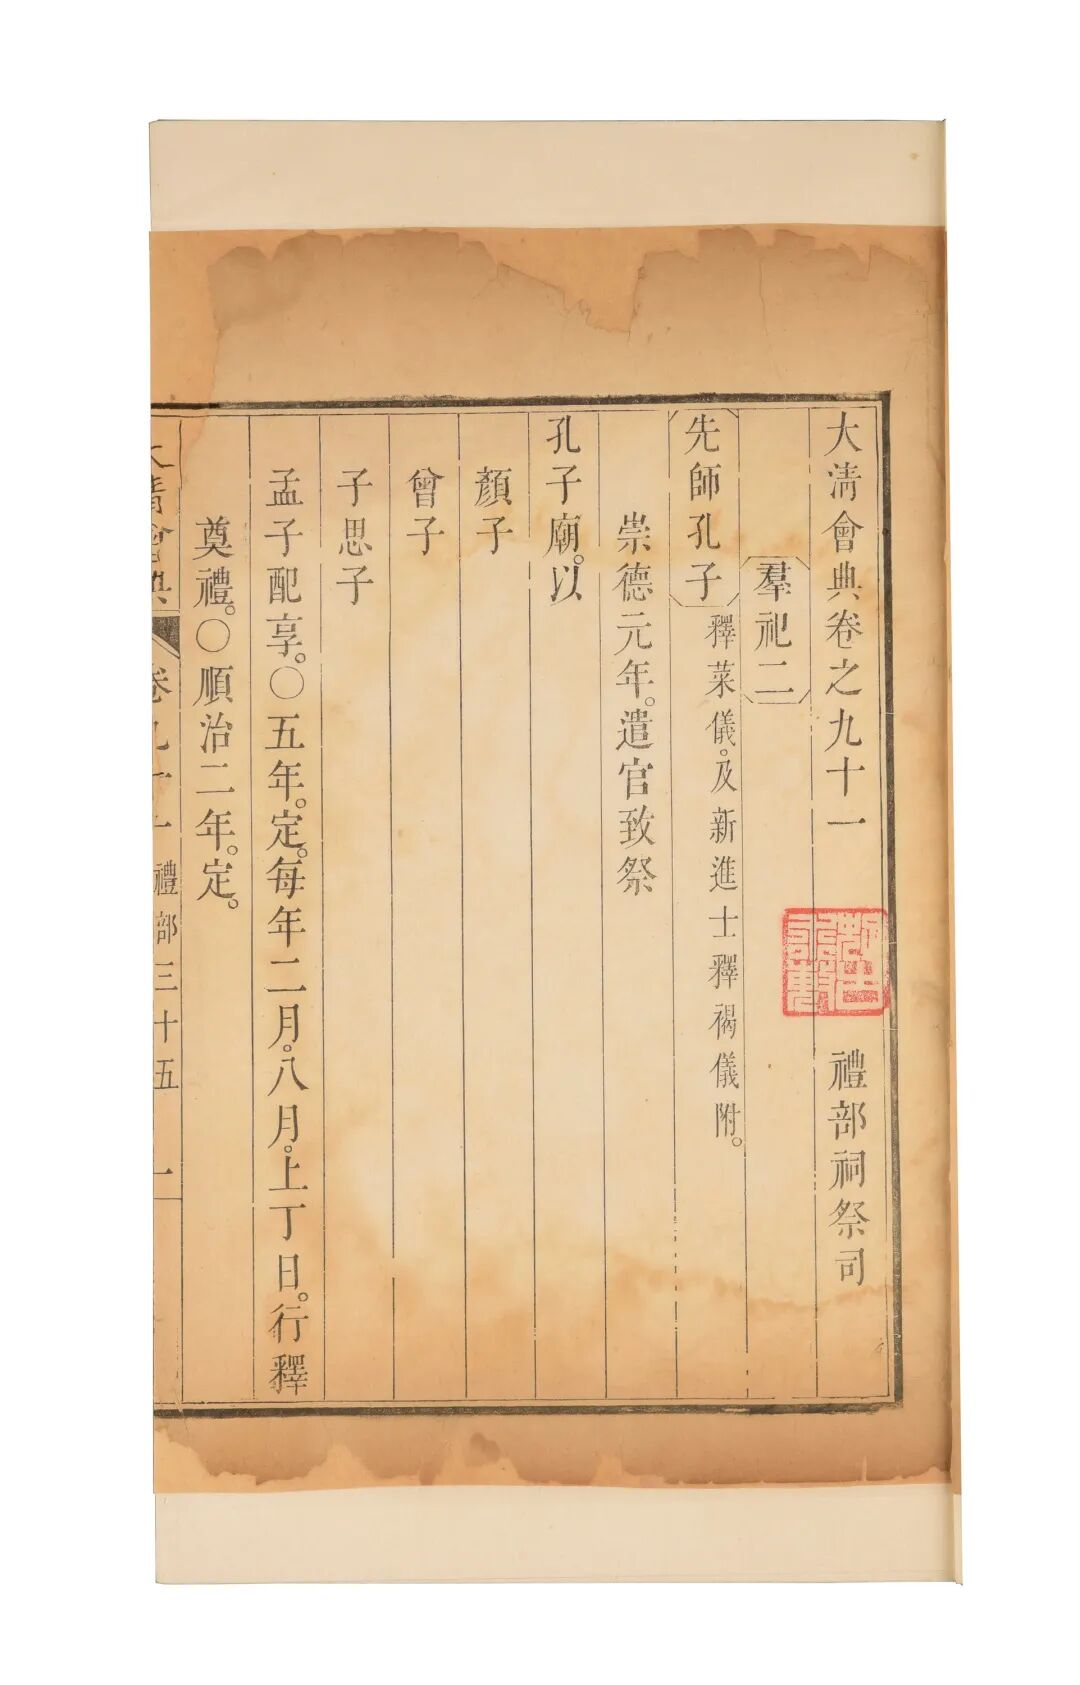 大淸會典卷之九十一　禮部祠祭司
羣祀二
先師孔子釋菜儀。及新進士釋褐儀附。
崇德元年。遣官致祭
孔子廟。以
顏子
曾子
子思子
孟子配享。○五年。定。每年二月。八月。上丁日。行釋
奠禮。○順治二年。定。
大淸會典　卷九十一　禮部三十五　一